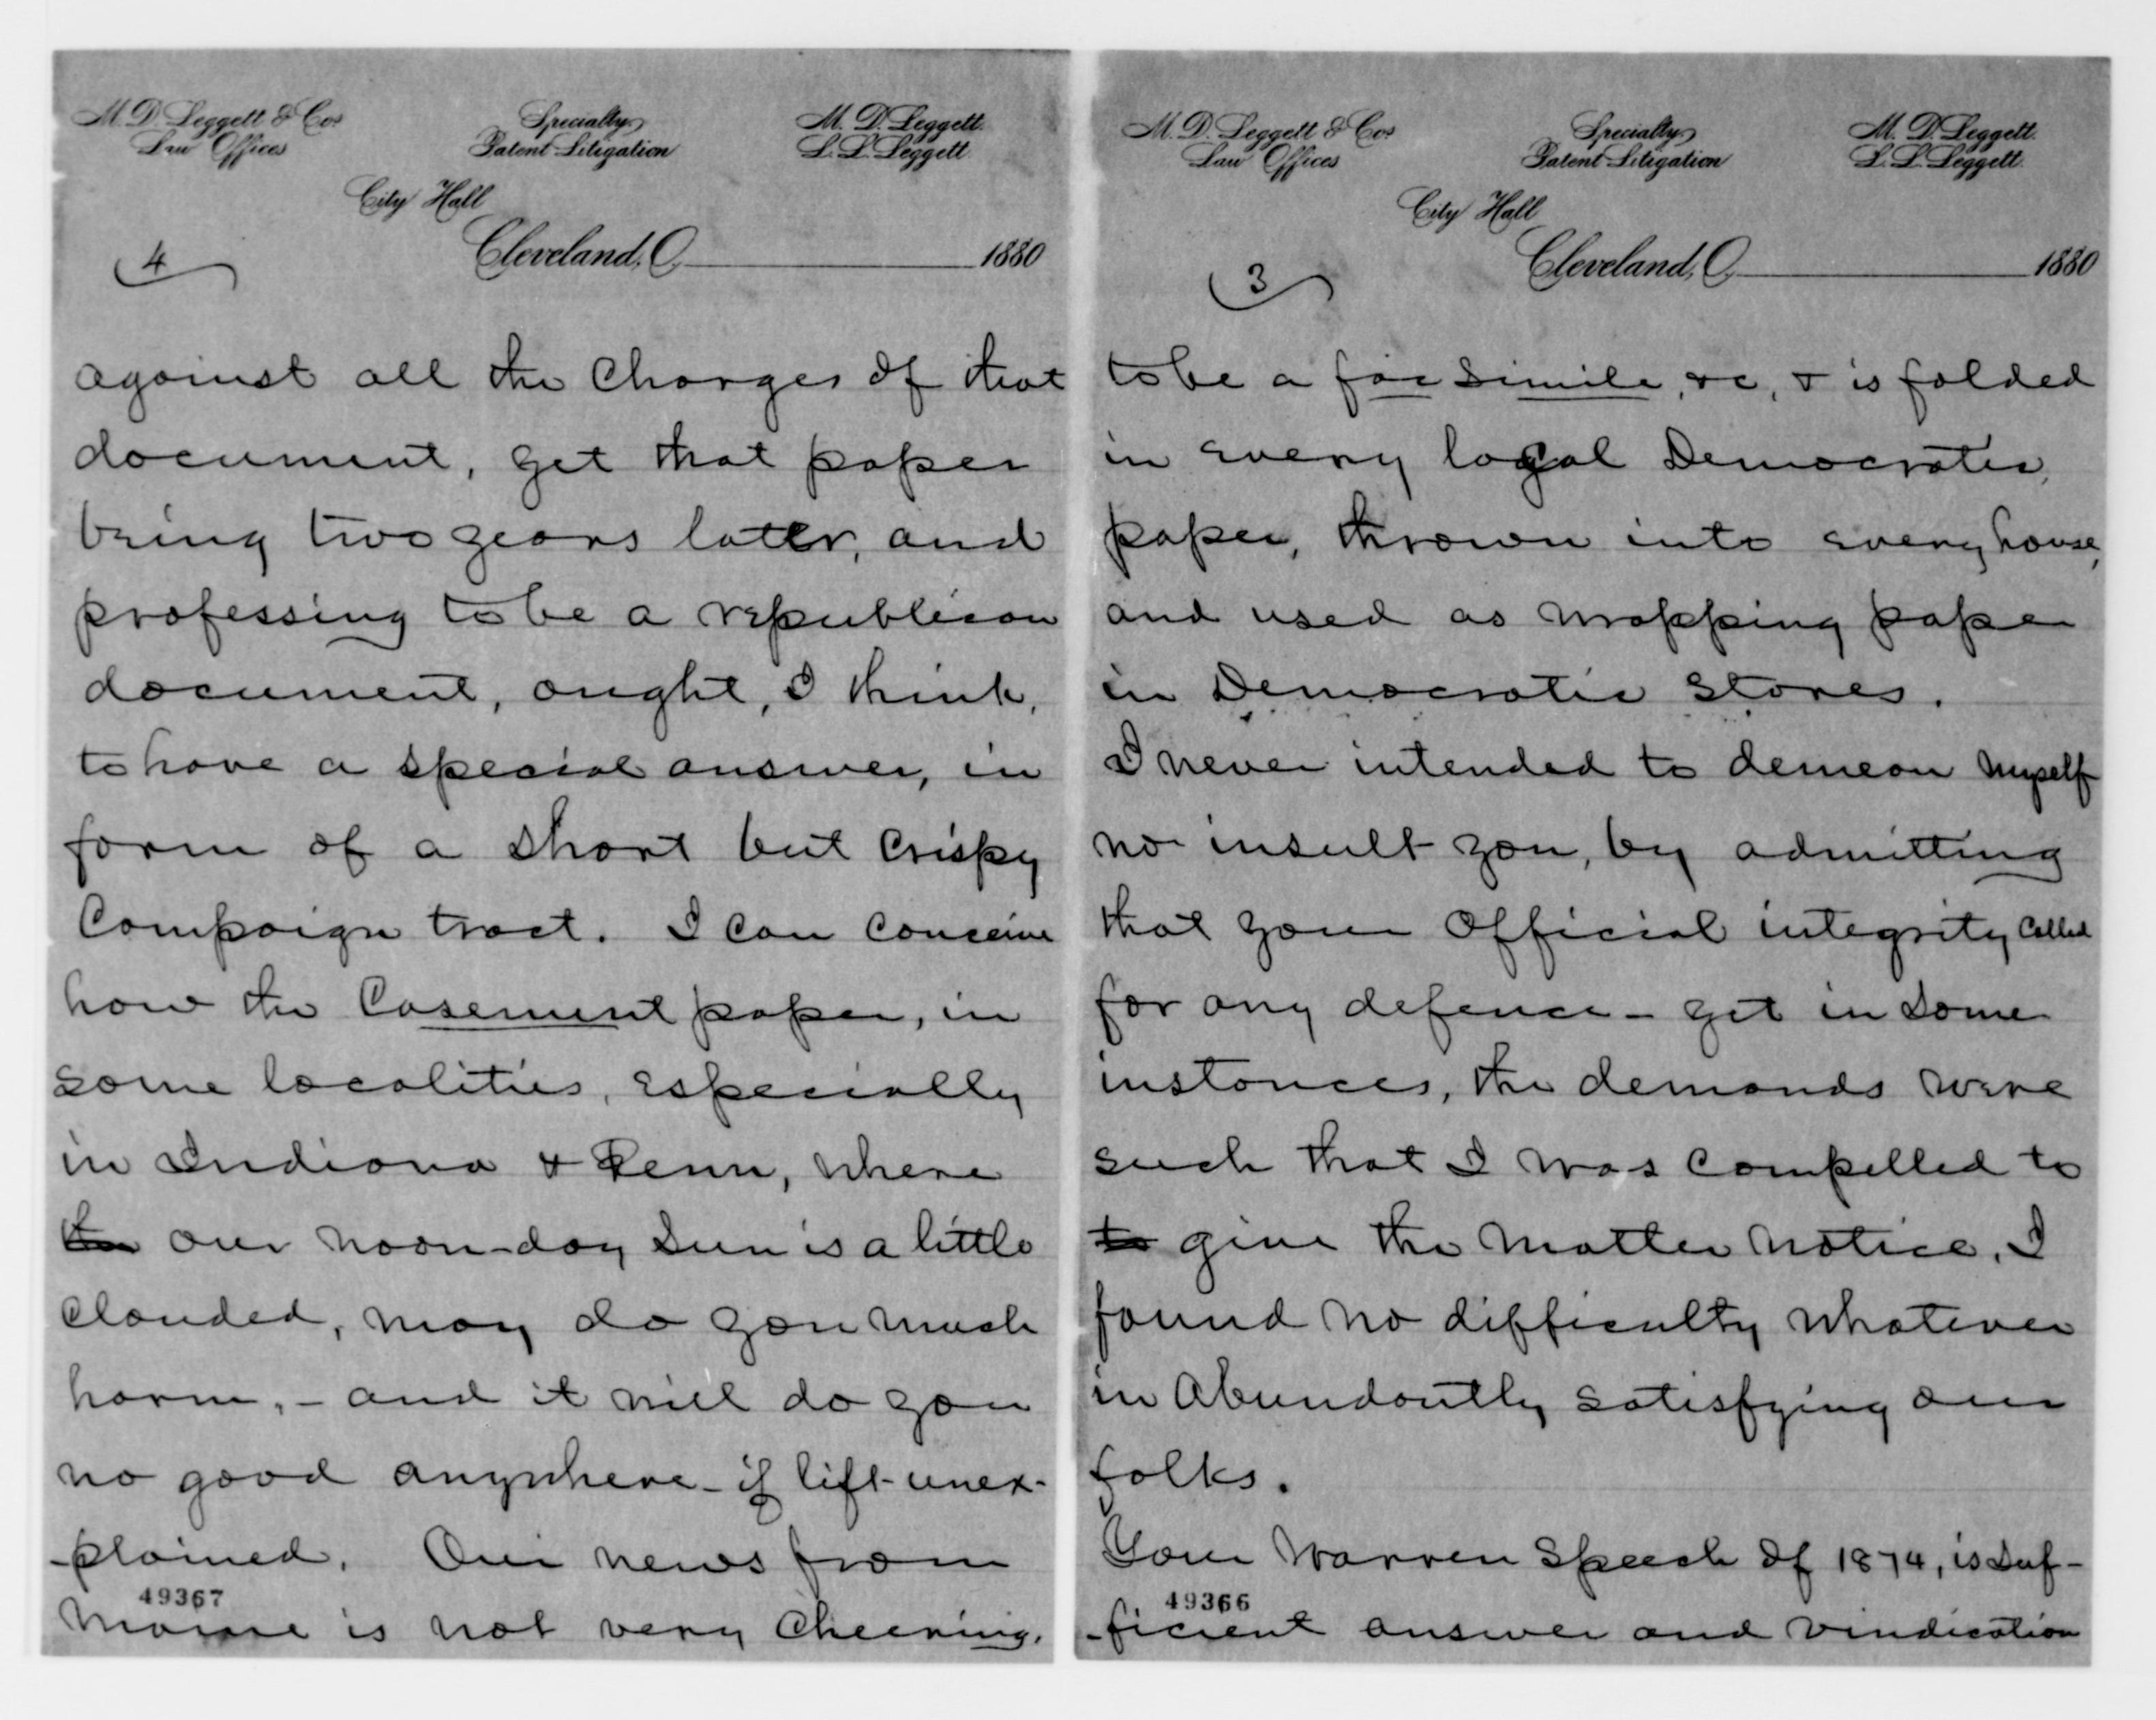 M. D. Leggett & Co.
Law Offices
Specialty
Patent Litigation
M. D. Leggett.
L. L. Leggett.
City Hall
Cleveland, O. 1880
4
against all the Charges of that
document, yet that paper
being two years later, and
professing to be a republican
document, ought, I think,
to have a special answer, in
form of a short but crispy
Campaign tract. I can conceive
how the Casement paper, in
some localities, especially
in Indiana & Penn, where
the our noon-day Sun is a little
clouded, may do you much
harm, - and it will do you
no good anywhere - if left unex-
-plained. Our news from
49367
Maine is not very cheering.
M. D. Leggett & Co.
Law Offices
Specialty
Patent Litigation
M. D. Leggett.
L. L. Leggett.
City Hall
Cleveland, O. 1880
3
to be a fac simile, &c, & is folded
in every local Democratic
paper, thrown into every house,
and used as wrapping paper
in Democratic Stores.
I never intended to demean myself
no insult you, by admitting
that your Official integrity called
for any defence - yet in some
instances, the demands were
such that I was compelled to
to give the matter notice. I
found no difficulty whatever
in Abundantly satisfying our
folks.
Your Warren Speech of 1874, is suf-
49366
-ficient answer and vindication